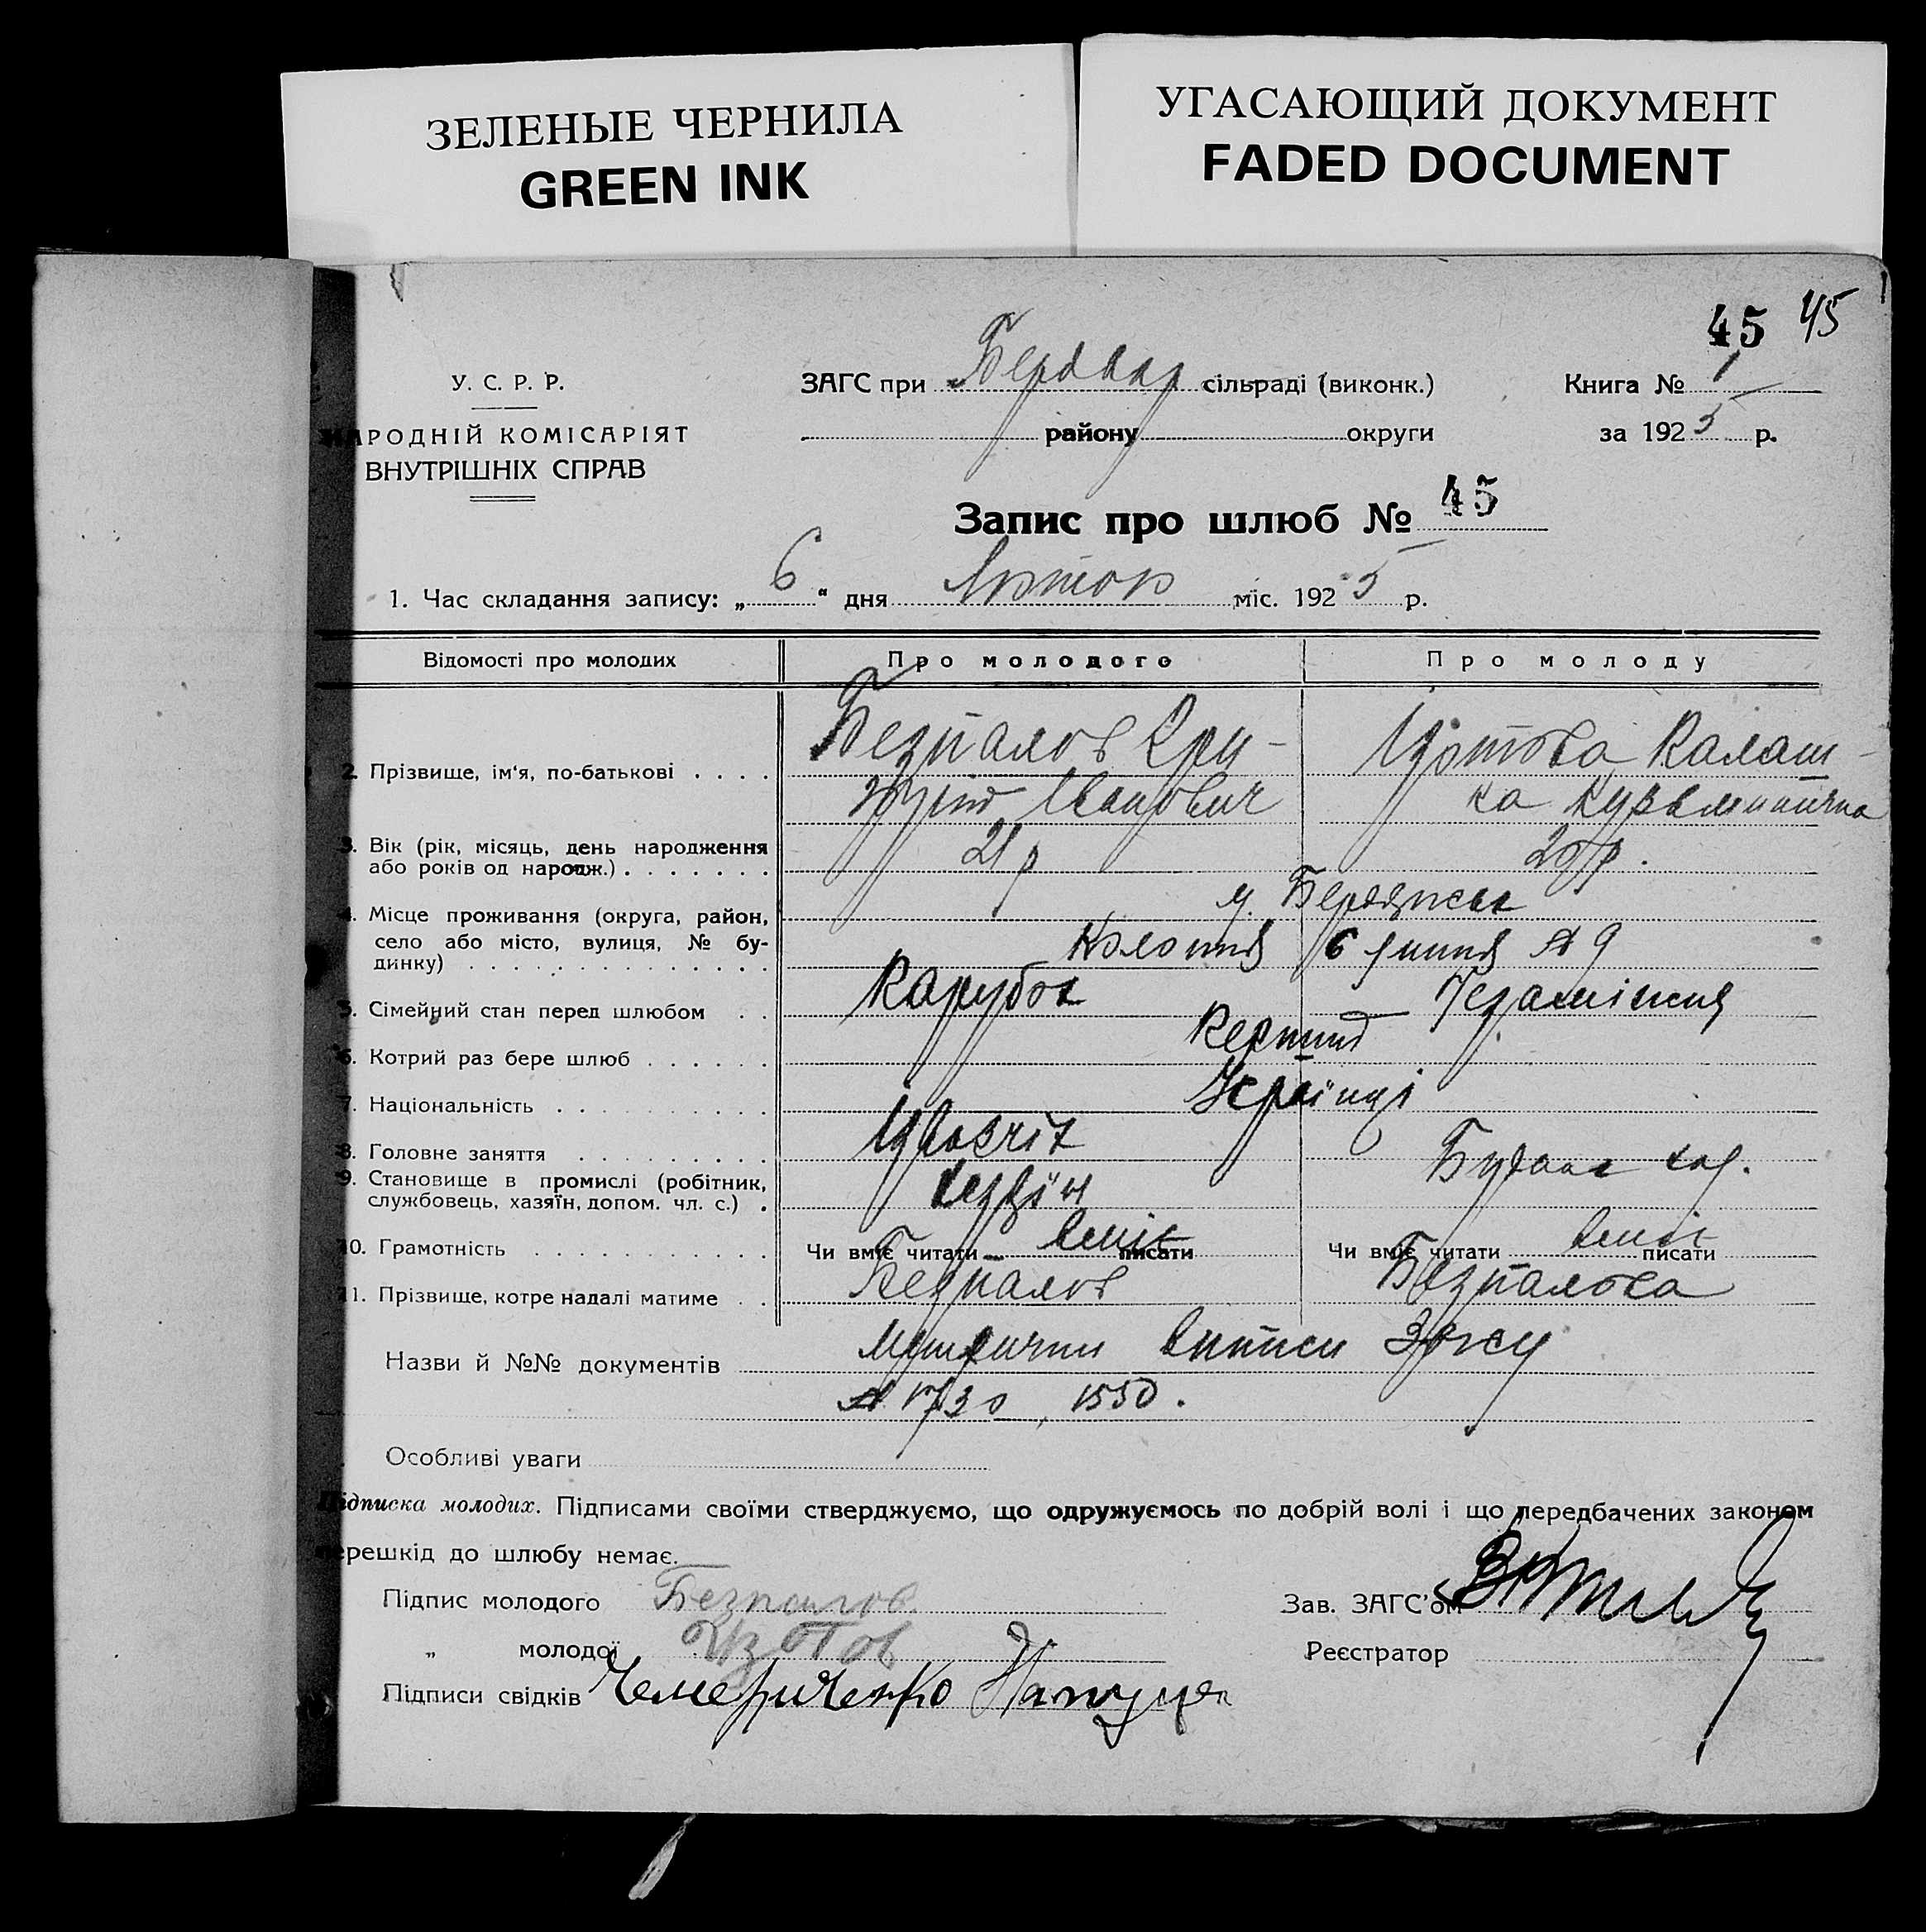 ЗЕЛЕНЫЕ ЧЕРНИЛА
GREEN INK
УГАСАЮЩИЙ ДОКУМЕНТ
FADED DOCUMENT
45 45
У. С. Р. Р.
НАРОДНІЙ КОМІСАРІЯТ
ВНУТРІШНІХ СПРАВ
ЗАГС при сільраді (виконк.)
району округи
Книга № 1
за 1925 р.
Запис про шлюб № 45
1. Час складання запису: „6“ дня Лютого міс. 1925 р.
Відомості про молодих Про молодого Про молоду
2. Прізвище, ім'я, по-батькові Безпалов Іванович Ізотова
3. Вік (рік, місяць, день народження 21 р 20 р.
або років од народж.)
4. Місце проживання (округа, район, м. Бердянськ
село або місто, вулиця, № бу- Колонія 6 линия № 9
динку)
5. Сімейний стан перед шлюбом Парубок Незаміжня
6. Котрий раз бере шлюб Перший
7. Національність Українці
8. Головне заняття
9. Становище в промислі (робітник, Хазяїн
службовець, хазяїн, допом. чл. с.)
10. Грамотність Чи вміє читати вміє писати Чи вміє читати вміє писати
11. Прізвище, котре надалі матиме Безпалов Безпалова
Назви й №№ документів Метричні виписи
№ 1730, 1550.
Особливі уваги
Підписка молодих. Підписами своїми стверджуємо, що одружуємось по добрій волі і що передбачених законом
перешкід до шлюбу немає.
Підпис молодого Безпалов
„ молодої Изотов
Підписи свідків Чемериченко
Зав. ЗАГС'ом
Реєстратор